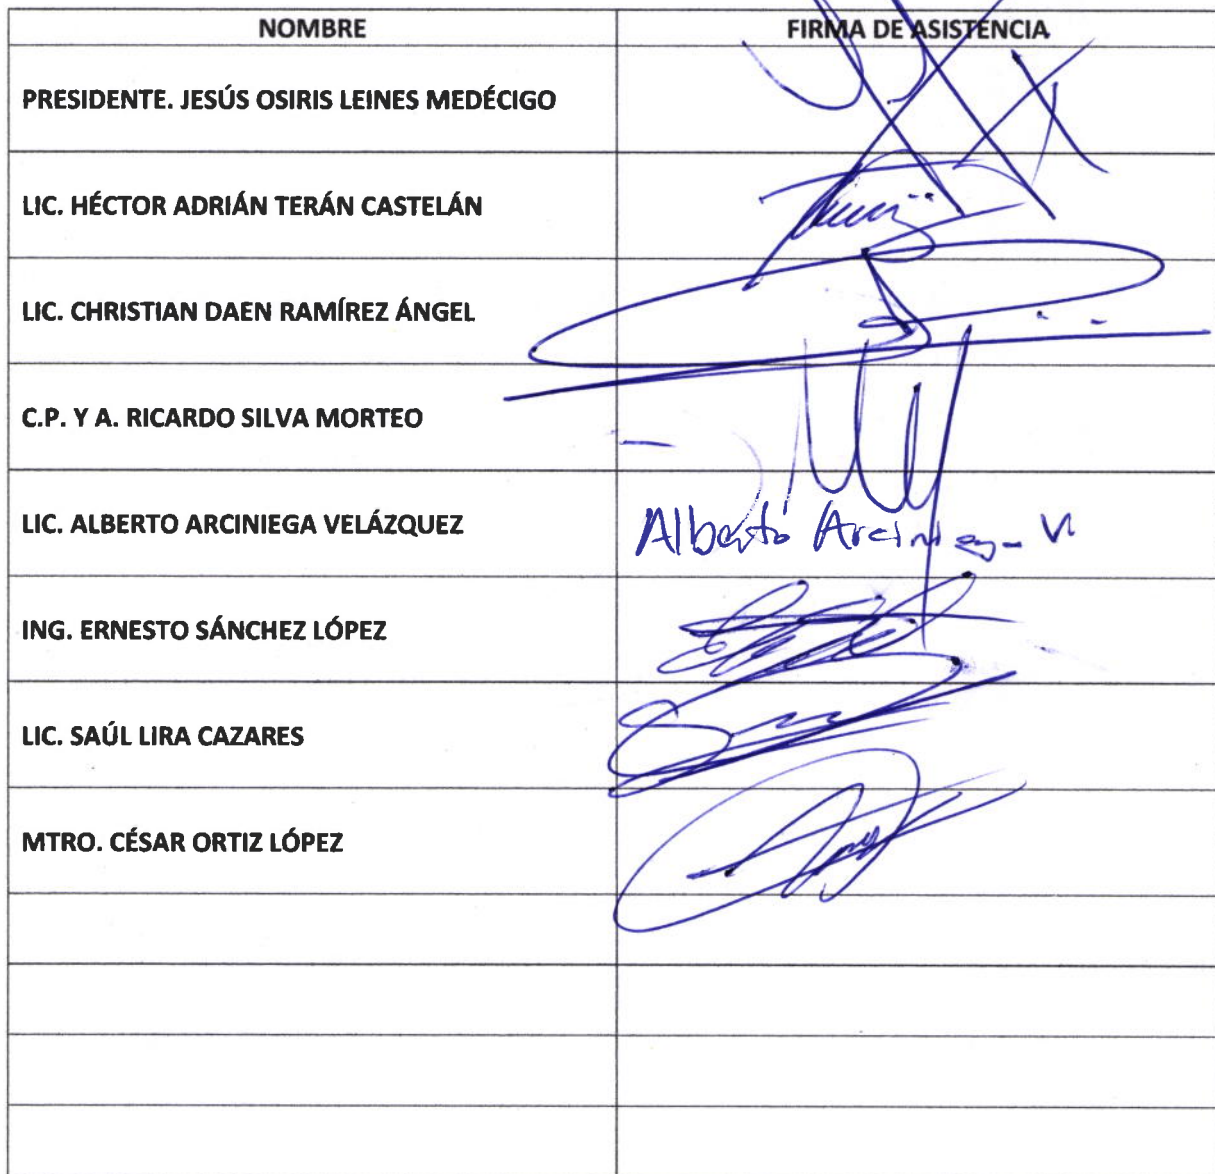 NOMBRE FIRMA DE ASISTENCIA
PRESIDENTE. JESÚS OSIRIS LEINES MEDÉCIGO
LIC. HÉCTOR ADRIÁN TERÁN CASTELÁN
LIC. CHRISTIAN DAEN RAMÍREZ ÁNGEL
C.P. Y A. RICARDO SILVA MORTEO
LIC. ALBERTO ARCINIEGA VELÁZQUEZ Alberto V
ING. ERNESTO SÁNCHEZ LÓPEZ
LIC. SAÚL LIRA CAZARES
MTRO. CÉSAR ORTIZ LÓPEZ